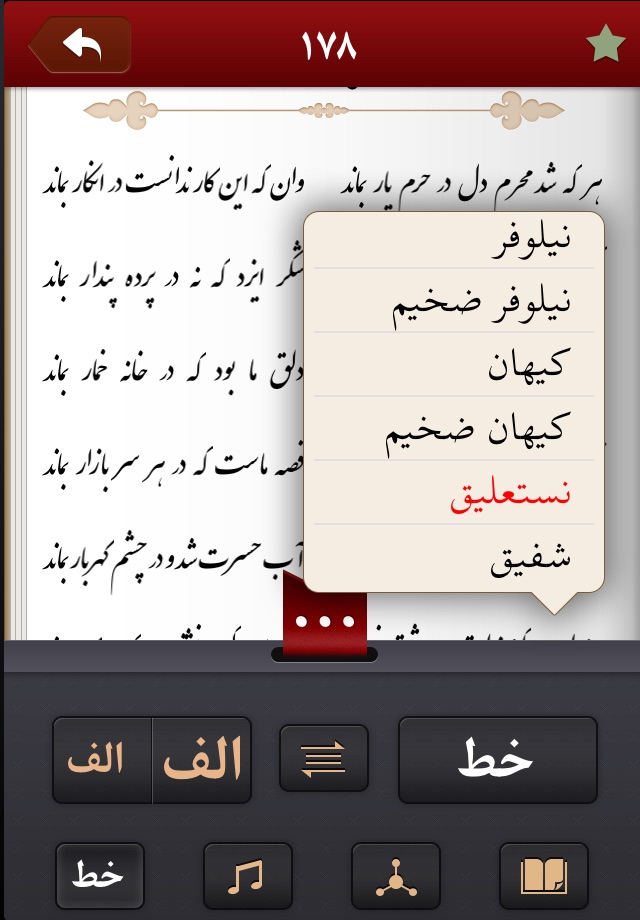 ۱۷۸
هر که شد محرم دل در حرم یار بماند
وان که این کار ندانست در انکار بماند
شکر ایزد که نه در پرده پندار بماند
دلق ما بود که در خانه خمار بماند
قصه ماست که در هر سر بازار بماند
آب حسرت شد و در چشم گهربار بماند
نیلوفر
نیلوفر ضخیم
کیهان
کیهان ضخیم
نستعلیق
شفیق
خط
الف
الف
خط